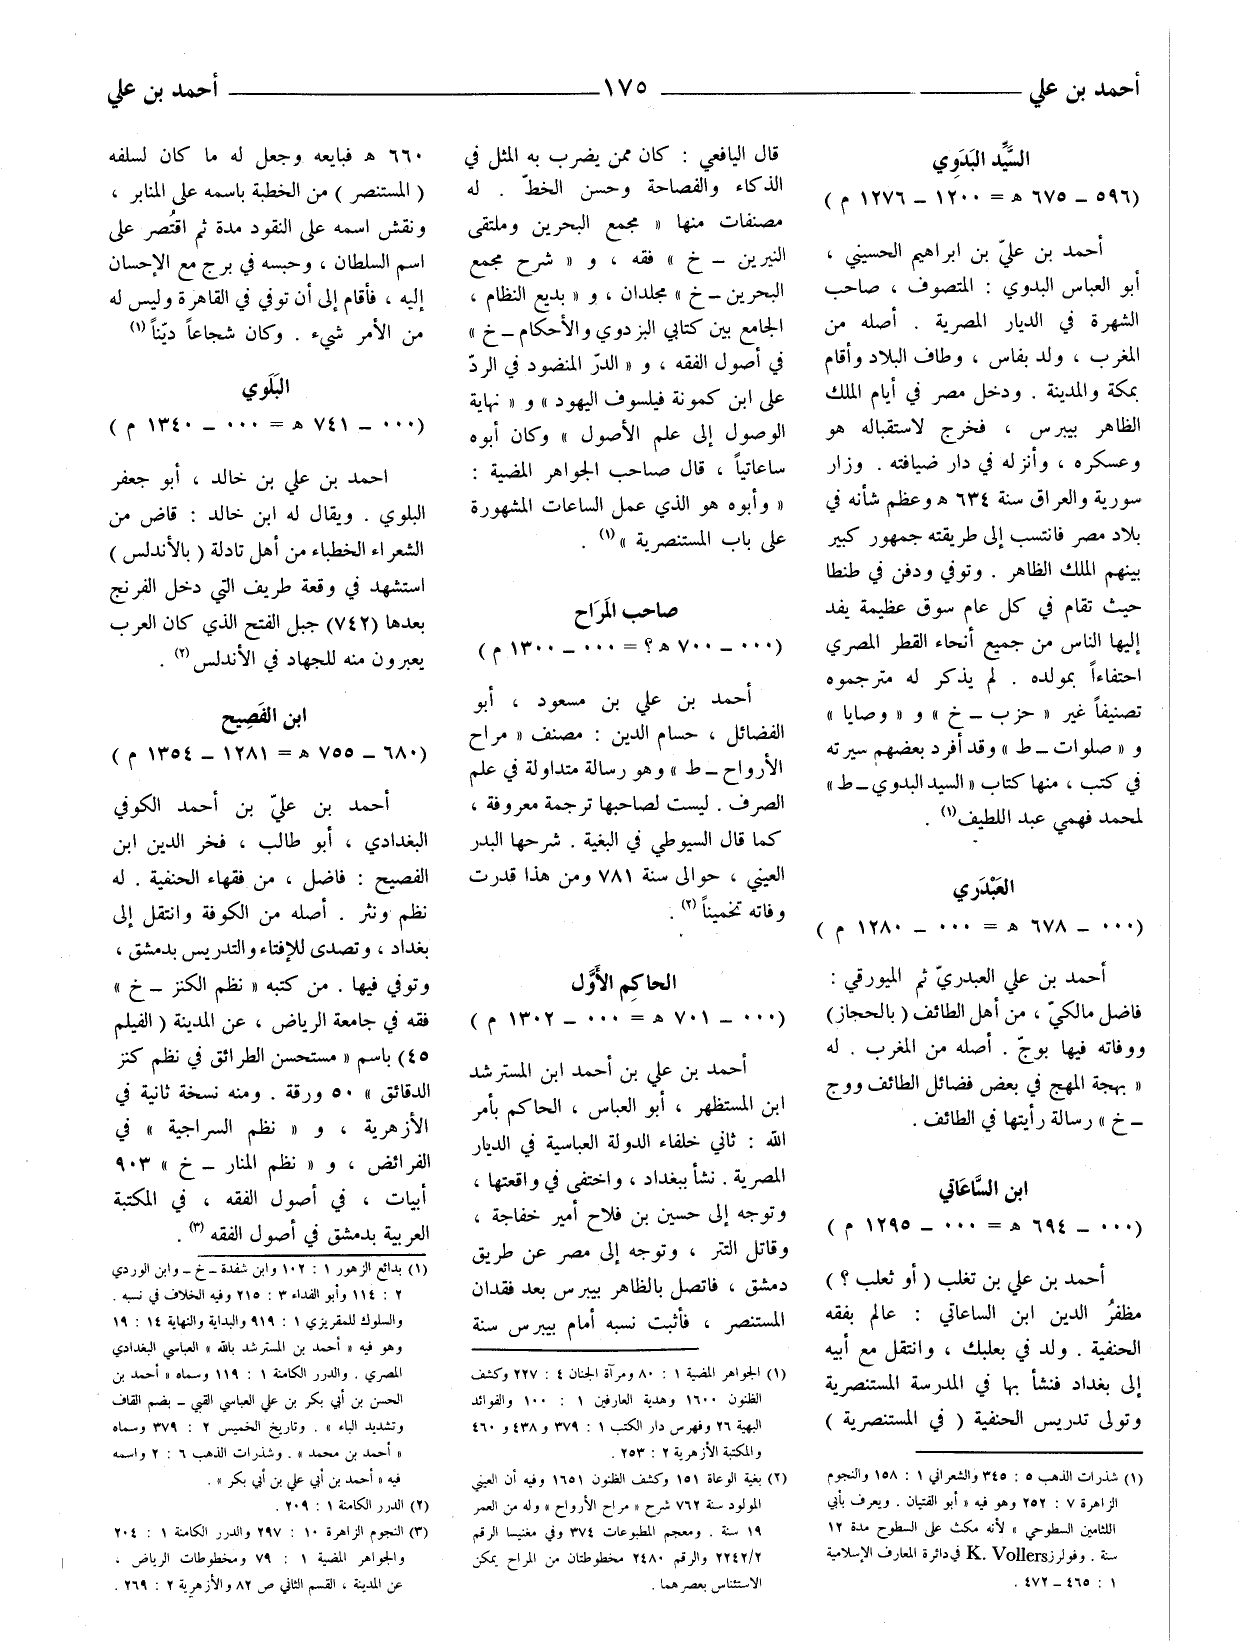 أحمد بن علي ١٧٥ أحمد بن علي
السَّيِّد البَدَوِي
(٥٩٦ ــ ٦٧٥ هـ = ١٢٠٠ ــ ١٢٧٦ م )
أحمد بن عليّ بن ابراهيم الحسيني ،
أبو العباس البدوي : المتصوف ، صاحب
الشهرة في الديار المصرية . أصله من
المغرب ، ولد بفاس ، وطاف البلاد وأقام
بمكة والمدينة . ودخل مصر في أيام الملك
الظاهر بيبرس ، فخرج لاستقباله هو
وعسكره ، وأنزله في دار ضيافته . وزار
سورية والعراق سنة ٦٣٤ هـ وعظم شأنه في
بلاد مصر فانتسب إلى طريقته جمهور كبير
بينهم الملك الظاهر . وتوفي ودفن في طنطا
حيث تقام في كل عام سوق عظيمة يفد
إليها الناس من جميع أنحاء القطر المصري
احتفاءاً بمولده . لم يذكر له مترجموه
تصنيفاً غير « حزب ــ خ » و « وصايا »
و « صلوات ــ ط » وقد أفرد بعضهم سيرته
في كتب ، منها كتاب « السيد البدوي ــ ط »
لمحمد فهمي عبد اللطيف (١) .
العَبْدَري
(٠٠٠ ــ ٦٧٨ هـ = ٠٠٠ ــ ١٢٨٠ م )
أحمد بن علي العبدريّ ثم الميورقي :
فاضل مالكيّ ، من أهل الطائف ( بالحجاز)
ووفاته فيها بوجّ . أصله من المغرب . له
« بهجة المهج في بعض فضائل الطائف ووج
ــ خ » رسالة رأيتها في الطائف .
ابن السَّاعَاتي
(٠٠٠ ــ ٦٩٤ هـ = ٠٠٠ ــ ١٢٩٥ م )
أحمد بن علي بن تغلب ( أو ثعلب ؟ )
مظفرُ الدين ابن الساعاتي : عالم بفقه
الحنفية . ولد في بعلبك ، وانتقل مع أبيه
إلى بغداد فنشأ بها في المدرسة المستنصرية
وتولى تدريس الحنفية ( في المستنصرية )
(١) شذرات الذهب ٥ : ٣٤٥ والشعراني ١ : ١٥٨ والنجوم
الزاهرة ٧ : ٢٥٢ وهو فيه « أبو الفتيان . ويعرف بأبي
اللثامين السطوحي » لأنه مكث على السطوح مدة ١٢
سنة . وفولرز K. Vollers في دائرة المعارف الإسلامية
١ : ٤٦٥ ــ ٤٧٢ .
قال اليافعي : كان ممن يضرب به المثل في
الذكاء والفصاحة وحسن الخطّ . له
مصنفات منها « مجمع البحرين وملتقى
النيرين ــ خ » فقه ، و « شرح مجمع
البحرين ــ خ » مجلدان ، و « بديع النظام ،
الجامع بين كتابي البزدوي والأحكام ــ خ »
في أصول الفقه ، و « الدرّ المنضود في الردّ
على ابن كمونة فيلسوف اليهود » و « نهاية
الوصول إلى علم الأصول » وكان أبوه
ساعاتياً ، قال صاحب الجواهر المضية :
« وأبوه هو الذي عمل الساعات المشهورة
على باب المستنصرية » (١) .
صاحب المَرَاح
(٠٠٠ ــ ٧٠٠ هـ ؟ = ٠٠٠ ــ ١٣٠٠ م )
أحمد بن علي بن مسعود ، أبو
الفضائل ، حسام الدين : مصنف « مراح
الأرواح ــ ط » وهو رسالة متداولة في علم
الصرف . ليست لصاحبها ترجمة معروفة ،
كما قال السيوطي في البغية . شرحها البدر
العيني ، حوالى سنة ٧٨١ ومن هذا قدرت
وفاته تخميناً (٢) .
الحاكِم الأَوَّل
(٠٠٠ ــ ٧٠١ هـ = ٠٠٠ ــ ١٣٠٢ م )
أحمد بن علي بن أحمد ابن المسترشد
ابن المستظهر ، أبو العباس ، الحاكم بأمر
الله : ثاني خلفاء الدولة العباسية في الديار
المصرية . نشأ ببغداد ، واختفى في واقعتها ،
وتوجه إلى حسين بن فلاح أمير خفاجة ،
وقاتل التتر ، وتوجه إلى مصر عن طريق
دمشق ، فاتصل بالظاهر بيبرس بعد فقدان
المستنصر ، فأثبت نسبه أمام بيبرس سنة
(١) الجواهر المضية ١ : ٨٠ ومرآة الجنان ٤ : ٢٢٧ وكشف
الظنون ١٦٠٠ وهدية العارفين ١ : ١٠٠ والفوائد
البهية ٢٦ وفهرس دار الكتب ١ : ٣٧٩ و ٤٣٨ و ٤٦٠
والمكتبة الأزهرية ٢ : ٢٥٣ .
(٢) بغية الوعاة ١٥١ وكشف الظنون ١٦٥١ وفيه أن العيني
المولود سنة ٧٦٢ شرح « مراح الأرواح » وله من العمر
١٩ سنة . ومعجم المطبوعات ٣٧٤ وفي مغنيسا الرقم
٢٢٤٢/٢ والرقم ٢٤٨٠ مخطوطتان من المراح يمكن
الاستئناس بعصرهما .
٦٦٠ هـ فبايعه وجعل له ما كان لسلفه
( المستنصر ) من الخطبة باسمه على المنابر ،
ونقش اسمه على النقود مدة ثم اقتُصر على
اسم السلطان ، وحبسه في برج مع الإحسان
إليه ، فأقام إلى أن توفي في القاهرة وليس له
من الأمر شيء . وكان شجاعاً ديّناً (١)
البَلَوي
(٠٠٠ ــ ٧٤١ هـ = ٠٠٠ ــ ١٣٤٠ م )
احمد بن علي بن خالد ، أبو جعفر
البلوي . ويقال له ابن خالد : قاض من
الشعراء الخطباء من أهل تادلة ( بالأندلس )
استشهد في وقعة طريف التي دخل الفرنج
بعدها (٧٤٢) جبل الفتح الذي كان العرب
يعبرون منه للجهاد في الأندلس (٢) .
ابن الفَصِيح
(٦٨٠ ــ ٧٥٥ هـ = ١٢٨١ ــ ١٣٥٤ م )
أحمد بن عليّ بن أحمد الكوفي
البغدادي ، أبو طالب ، فخر الدين ابن
الفصيح : فاضل ، من فقهاء الحنفية . له
نظم ونثر . أصله من الكوفة وانتقل إلى
بغداد ، وتصدى للإفتاء والتدريس بدمشق ،
وتوفي فيها . من كتبه « نظم الكنز ــ خ »
فقه في جامعة الرياض ، عن المدينة ( الفيلم
٤٥) باسم « مستحسن الطرائق في نظم كنز
الدقائق » ٥٠ ورقة . ومنه نسخة ثانية في
الأزهرية ، و « نظم السراجية » في
الفرائض ، و « نظم المنار ــ خ » ٩٠٣
أبيات ، في أصول الفقه ، في المكتبة
العربية بدمشق في أصول الفقه (٣) .
(١) بدائع الزهور ١ : ١٠٢ وابن شقدة ــ خ ــ وابن الوردي
٢ : ١١٤ وأبو الفداء ٣ : ٢١٥ وفيه الخلاف في نسبه .
والسلوك للمقريزي ١ : ٩١٩ والبداية والنهاية ١٤ : ١٩
وهو فيه « أحمد بن المسترشد بالله » العباسي البغدادي
المصري . والدرر الكامنة ١ : ١١٩ وسماه « أحمد بن
الحسن بن أبي بكر بن علي العباسي القبي ــ بضم القاف
وتشديد الباء » . وتاريخ الخميس ٢ : ٣٧٩ وسماه
« أحمد بن محمد » . وشذرات الذهب ٦ : ٢ واسمه
فيه « أحمد بن أبي علي بن أبي بكر » .
(٢) الدرر الكامنة ١ : ٢٠٩ .
(٣) النجوم الزاهرة ١٠ : ٢٩٧ والدرر الكامنة ١ : ٢٠٤
والجواهر المضية ١ : ٧٩ ومخطوطات الرياض ،
عن المدينة ، القسم الثاني ص ٨٢ والأزهرية ٢ : ٢٦٩ .